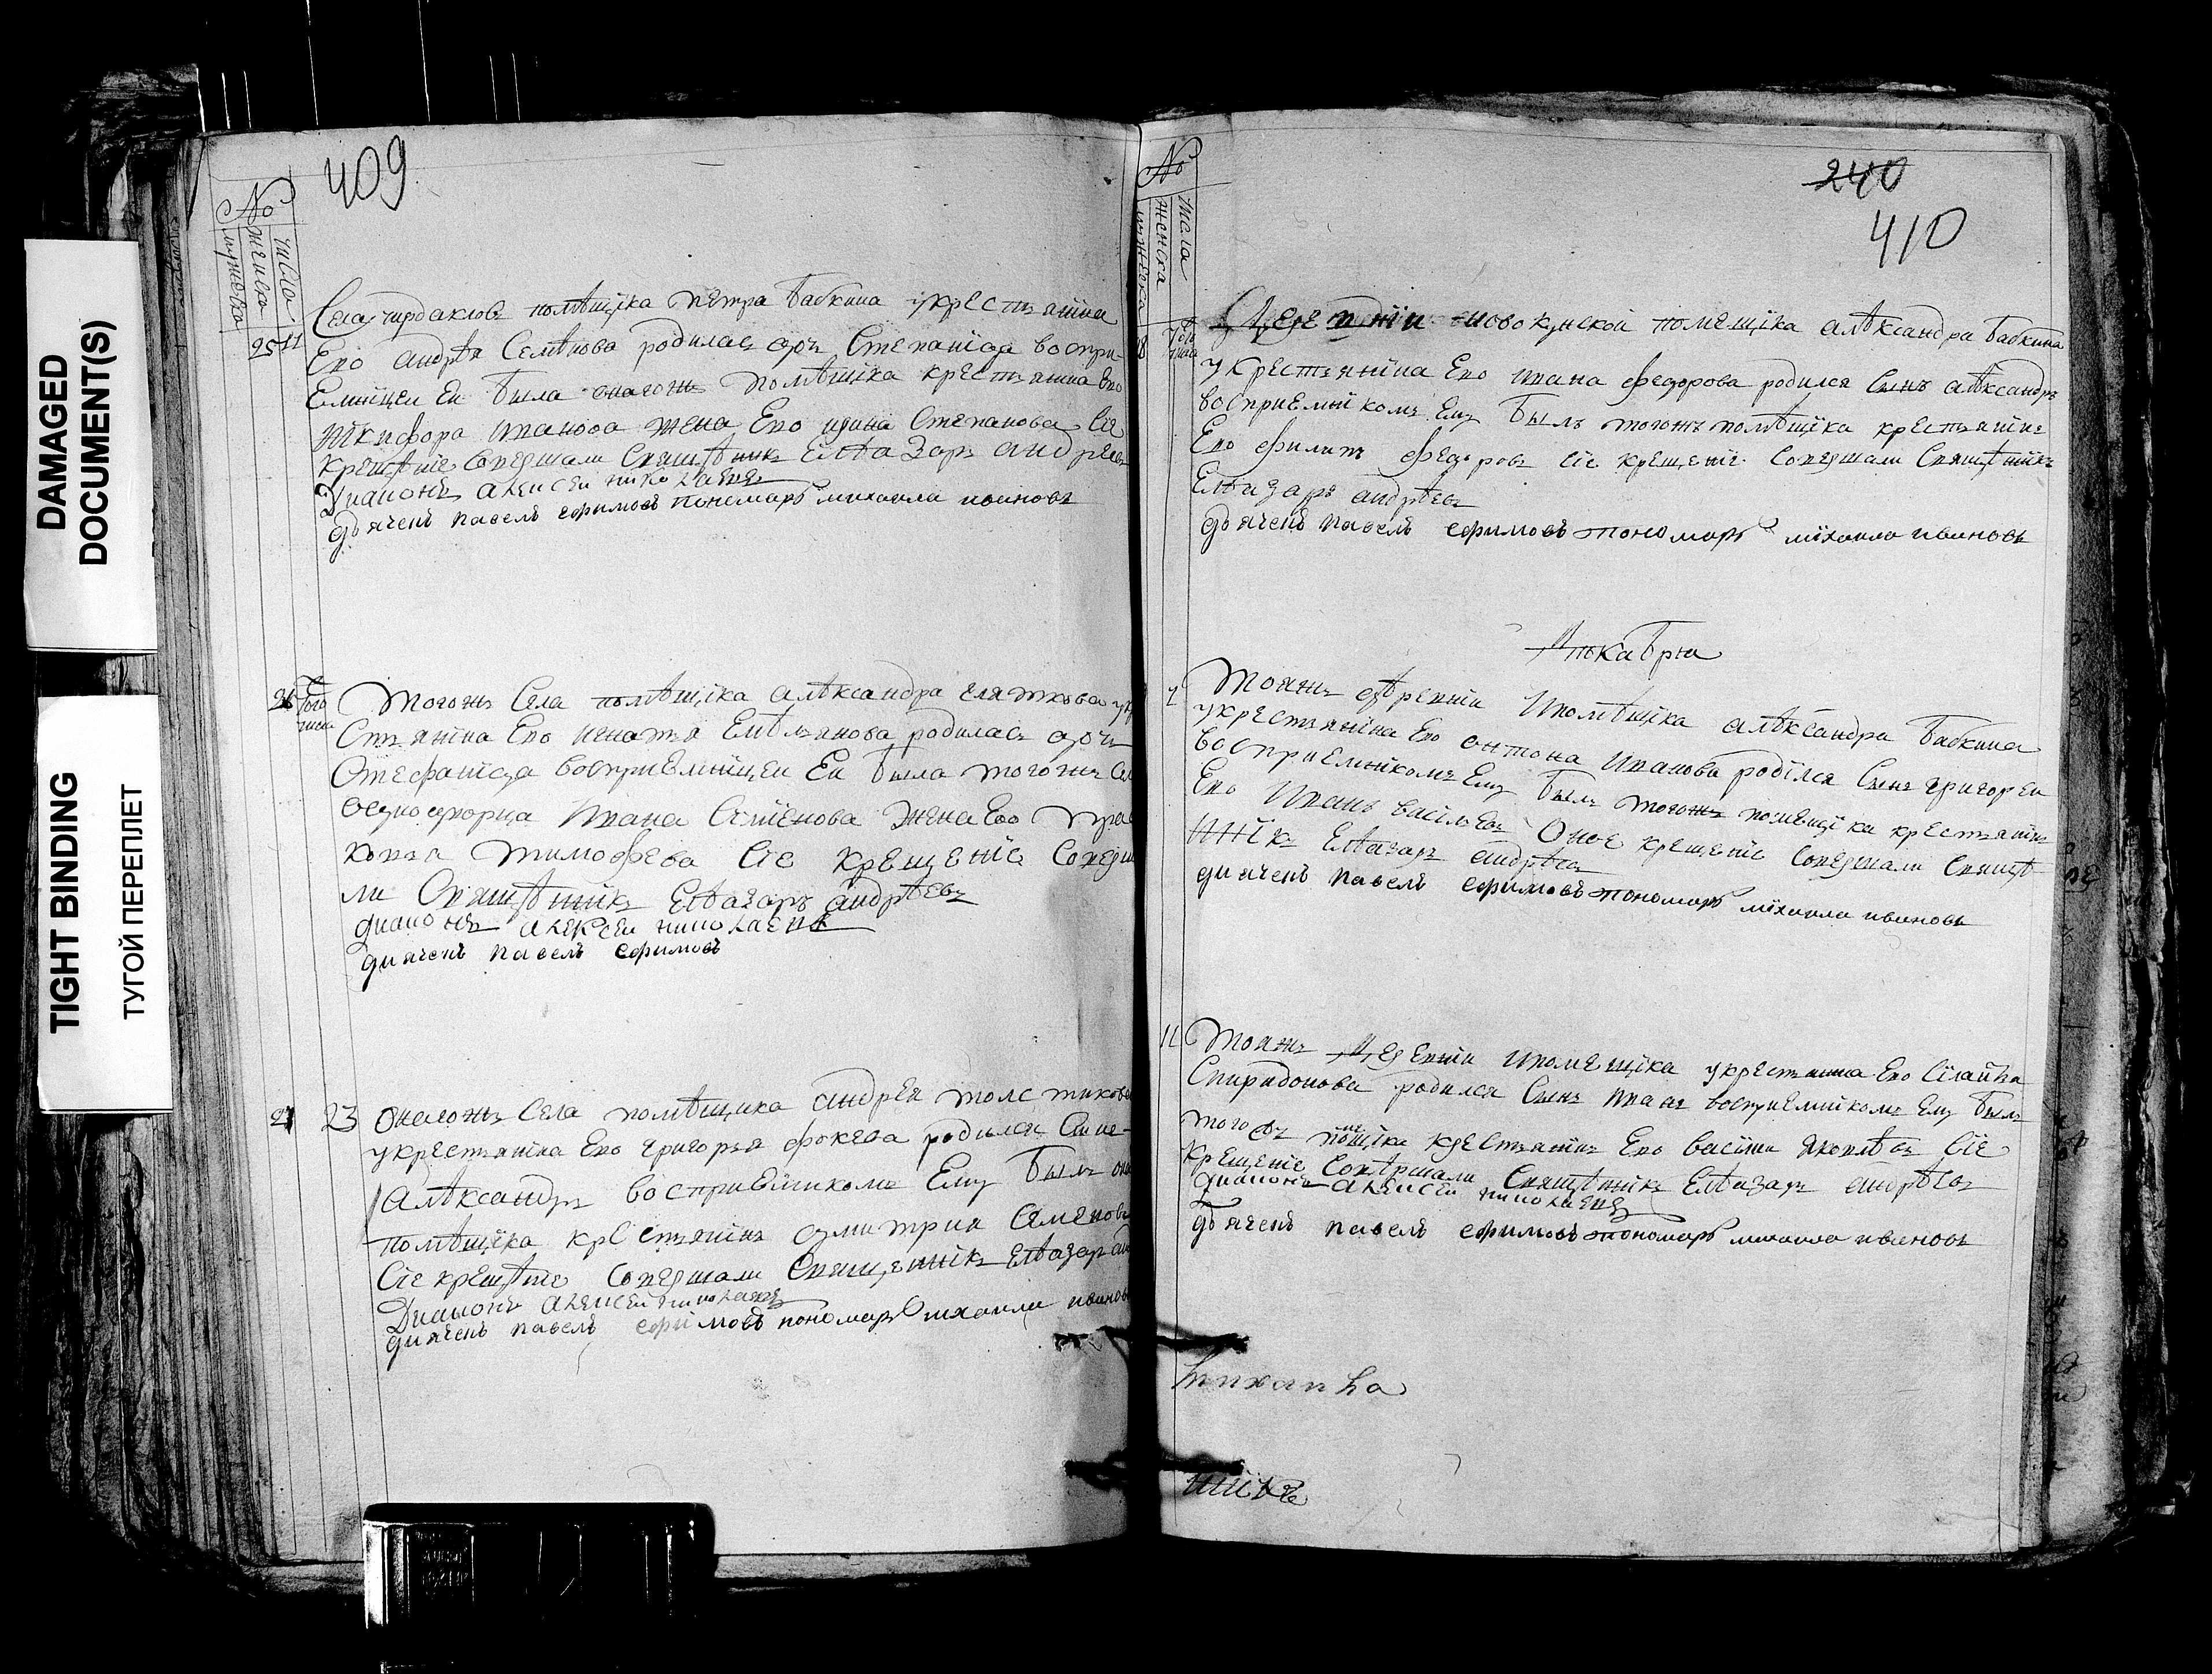 DAMAGED
DOCUMENT(S)
TIGHT BINDING
ТУГОЙ ПЕРЕПЛЕТ
409
№
числа
женска
мужеска
25 11
Села помѣщїка петра бабкина укрестьянїна
Ево андрѣя Семѣнова родилась дочь Степанїда воспри-
Емнїцеи Еи была оногожъ помѣщїка крестьянина Ево
нїкифора иванова жена Ево ирина Степанова Сїе
крещѣнїе Совершали Священникъ Елѣазаръ андреевъ
Диаконъ алексеи николаевъ
дьяченъ павелъ ефимовъ пономарь михаила ивановъ
26 Того числа
Тогожъ Села помѣщїка алѣксандра укре
Стьянїна Ево игнатья Емѣльянова родилась дочь
Стефанїда восприЕмнїцеи Еи была тогожъ Села
однодворца Ивана Семїонова жена Ево
тимофѣева Сїе крещенїе Соверша
ли Священнїкъ Елѣазаръ андрѣевъ
диаконъ алексеи николаевъ
диаченъ павелъ ефимовъ
27 23
Оногожъ Села помѣщика андрея толстикова
укрестьянїна Ево григорья фокѣева родился Сынъ
Алѣксандръ восприЕмникомъ Ему былъ оного
помѣщїка крестьянїнъ дмитрии Семѣновъ
Сїе крещѣнїе Совершали Священнїкъ Елѣазаръ
Диаконъ алексеи николаевъ
диаченъ павелъ ефимовъ пономарь михаила ивановъ
240
410
№
числа
женска
мужеска
18 Того числа
Деревнїи помещїка алѣксандра бабкина
укрестьянїна Ево ивана федорова родился Сынъ алѣксандръ
восприЕмникомъ Ему былъ тогожъ помѣщїка крестьянїнъ
Ево филипъ федоровъ Сїе крещенїе Совершали Священнїкъ
Елѣазаръ андрѣевъ
дьяченъ павелъ ефимовъ пономарь мїхаила ивановъ
Декабря
2
Тояжъ дѣревнїи Ипомѣщїка алѣксандра бабкина
укрестьянїна Ево антона Иванова родїлся Сынъ григореи
восприЕмнїкомъ Ему былъ тогожъ помѣщїка крестьянїнъ
Ево Иванъ васїльевъ Оное крещенїе Совершали Священ
ннїкъ Елѣазаръ андрѣевъ
диаченъ павелъ ефимовъ пономарь мїхаила ивановъ
11
Тояжъ Деревнїи ипомещїка укрестьянина Ево
Спиридонова родился Сынъ Иванъ восприЕмнїкомъ Ему былъ
тогожъ помщїка крестьянїнъ Ево васїлиї яковлѣвъ Сїе
крещенїе Совѣршали Священнїкъ Елѣазаръ андрѣевъ
диаконъ алексеи николаевъ
дьяченъ павелъ ефимовъ пономарь михаила ивановъ